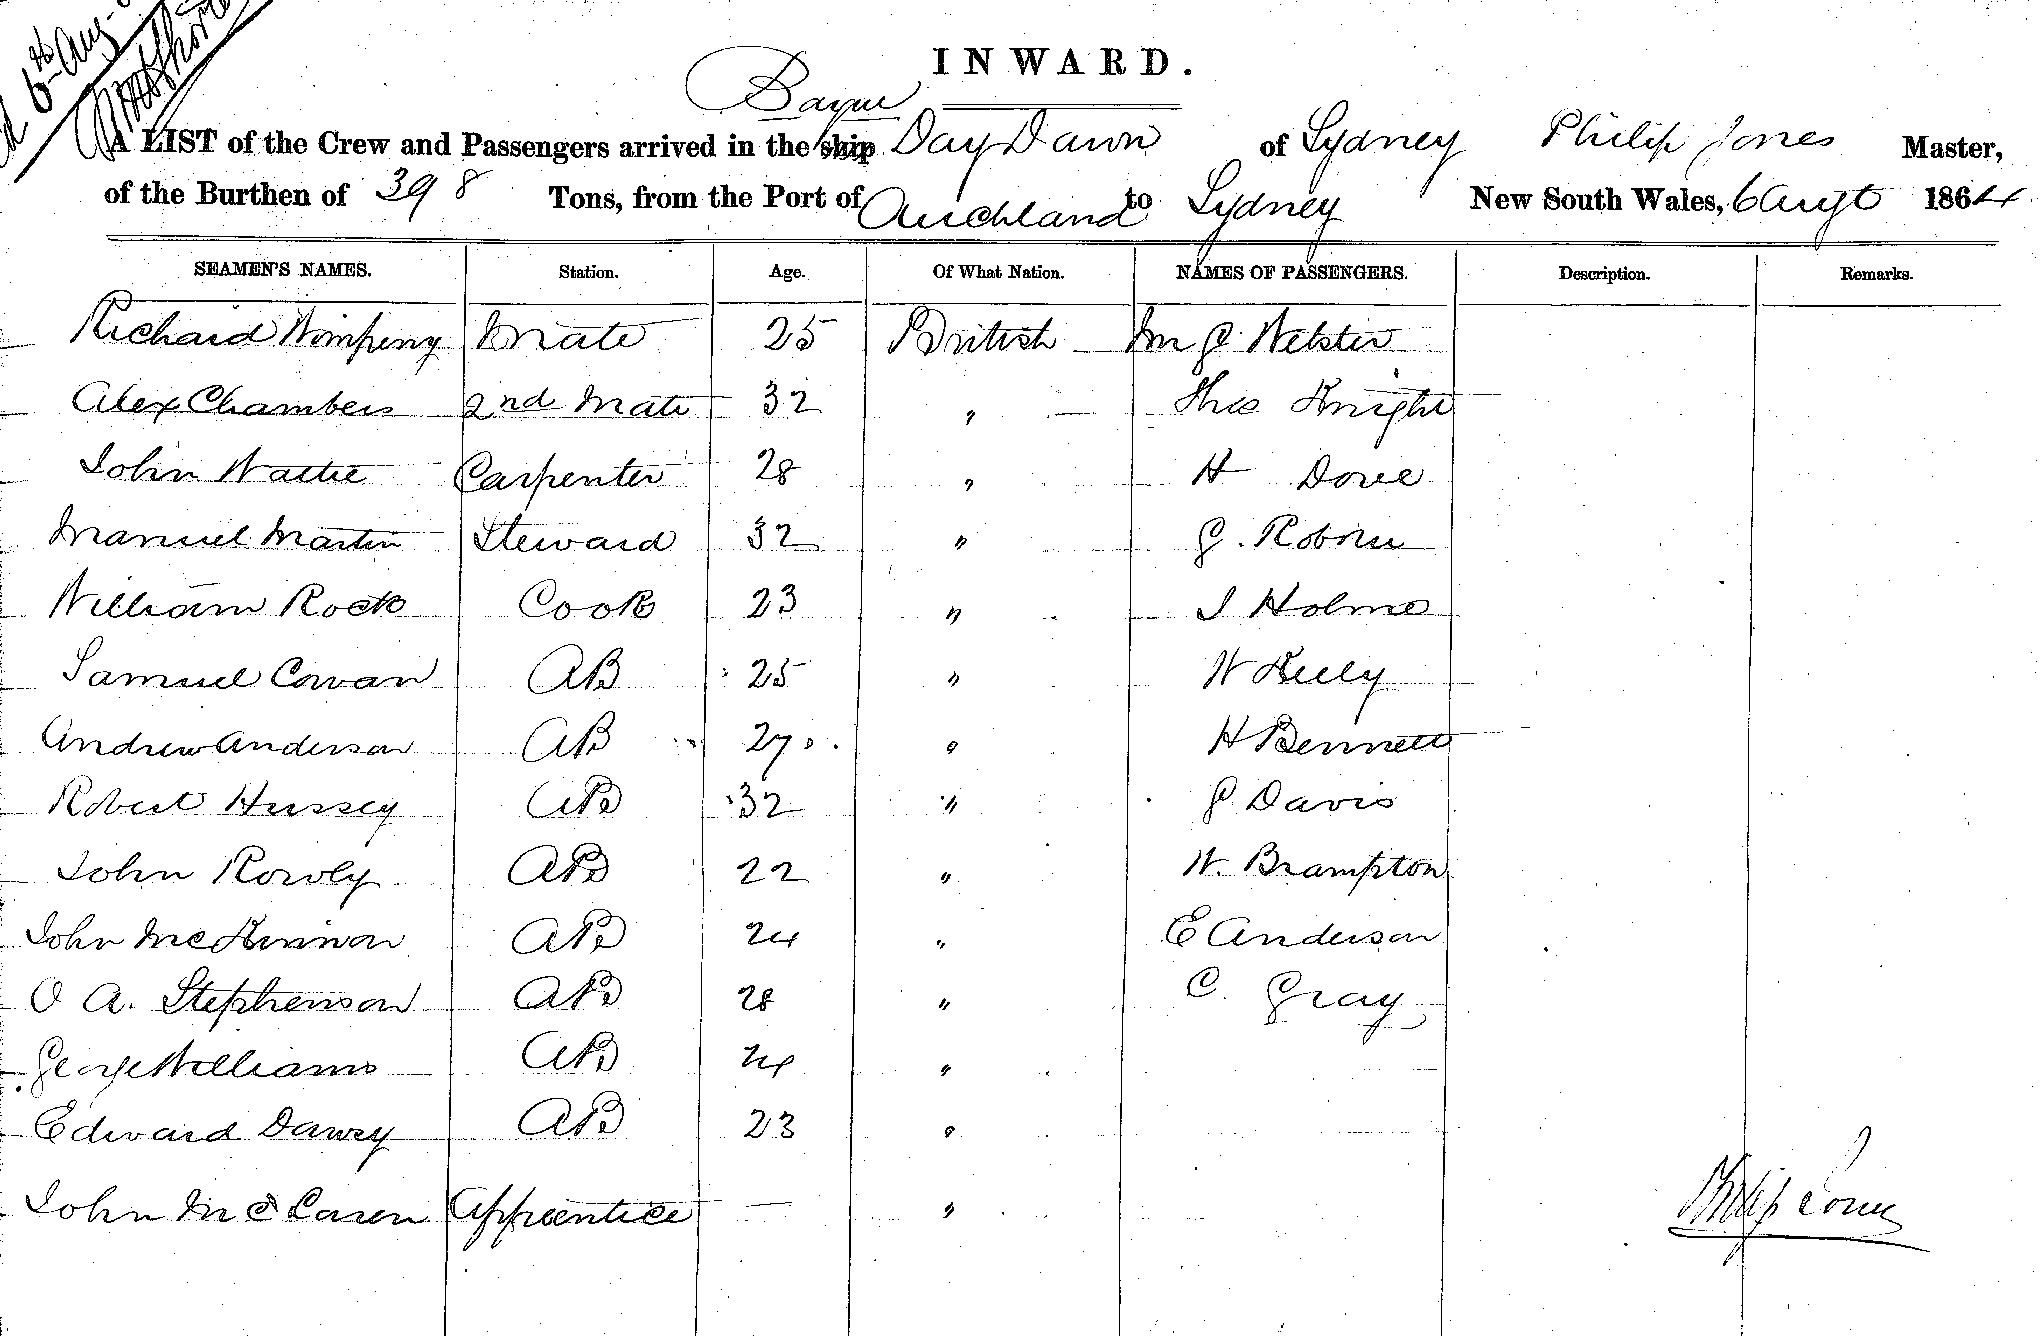 6th Aug
INWARD.
Barque
A LIST of the Crew and Passengers arrived in the ship Day Dawn of Sydney Philip Jones Master,
of the Burthen of 398 Tons, from the Port of Auckland to Sydney New South Wales, 6 Augt 1864
SEAMEN'S NAMES. Station. Age. Of What Nation. NAMES OF PASSENGERS. Description. Remarks.
Richard Wimpeny Mate 25 British Webster
Alex Chambers 2nd Mate 32 " Thos Knight
John Carpenter 28 " H Dove
Manuel Martin Steward 32 " G.
William Rock Cook 23 " J Holme
Samuel Cowan AB 25 " W
Andrew Anderson AB 27 " H Bennett
Robert Hussey AB 32 " G Davis
John Rowly AB 22 " W. Brampton
John McKinnon AB 24 " E Anderson
O A. Stephenson AB 28 " C. Gray
George Williams AB 24 "
Edward Dawey AB 23 "
John Apprentice — "
Philip Jones